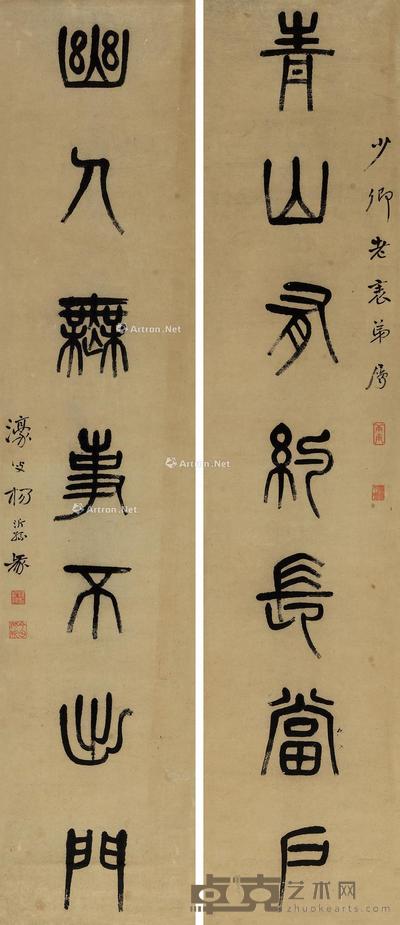 青山有約長當戶
少卿老表弟屬
幽人無事不出門
濠叟楊沂孫篆
Artron.Net
Artron.Net
Artron.Net
卓克艺术网
zhuokearts.com